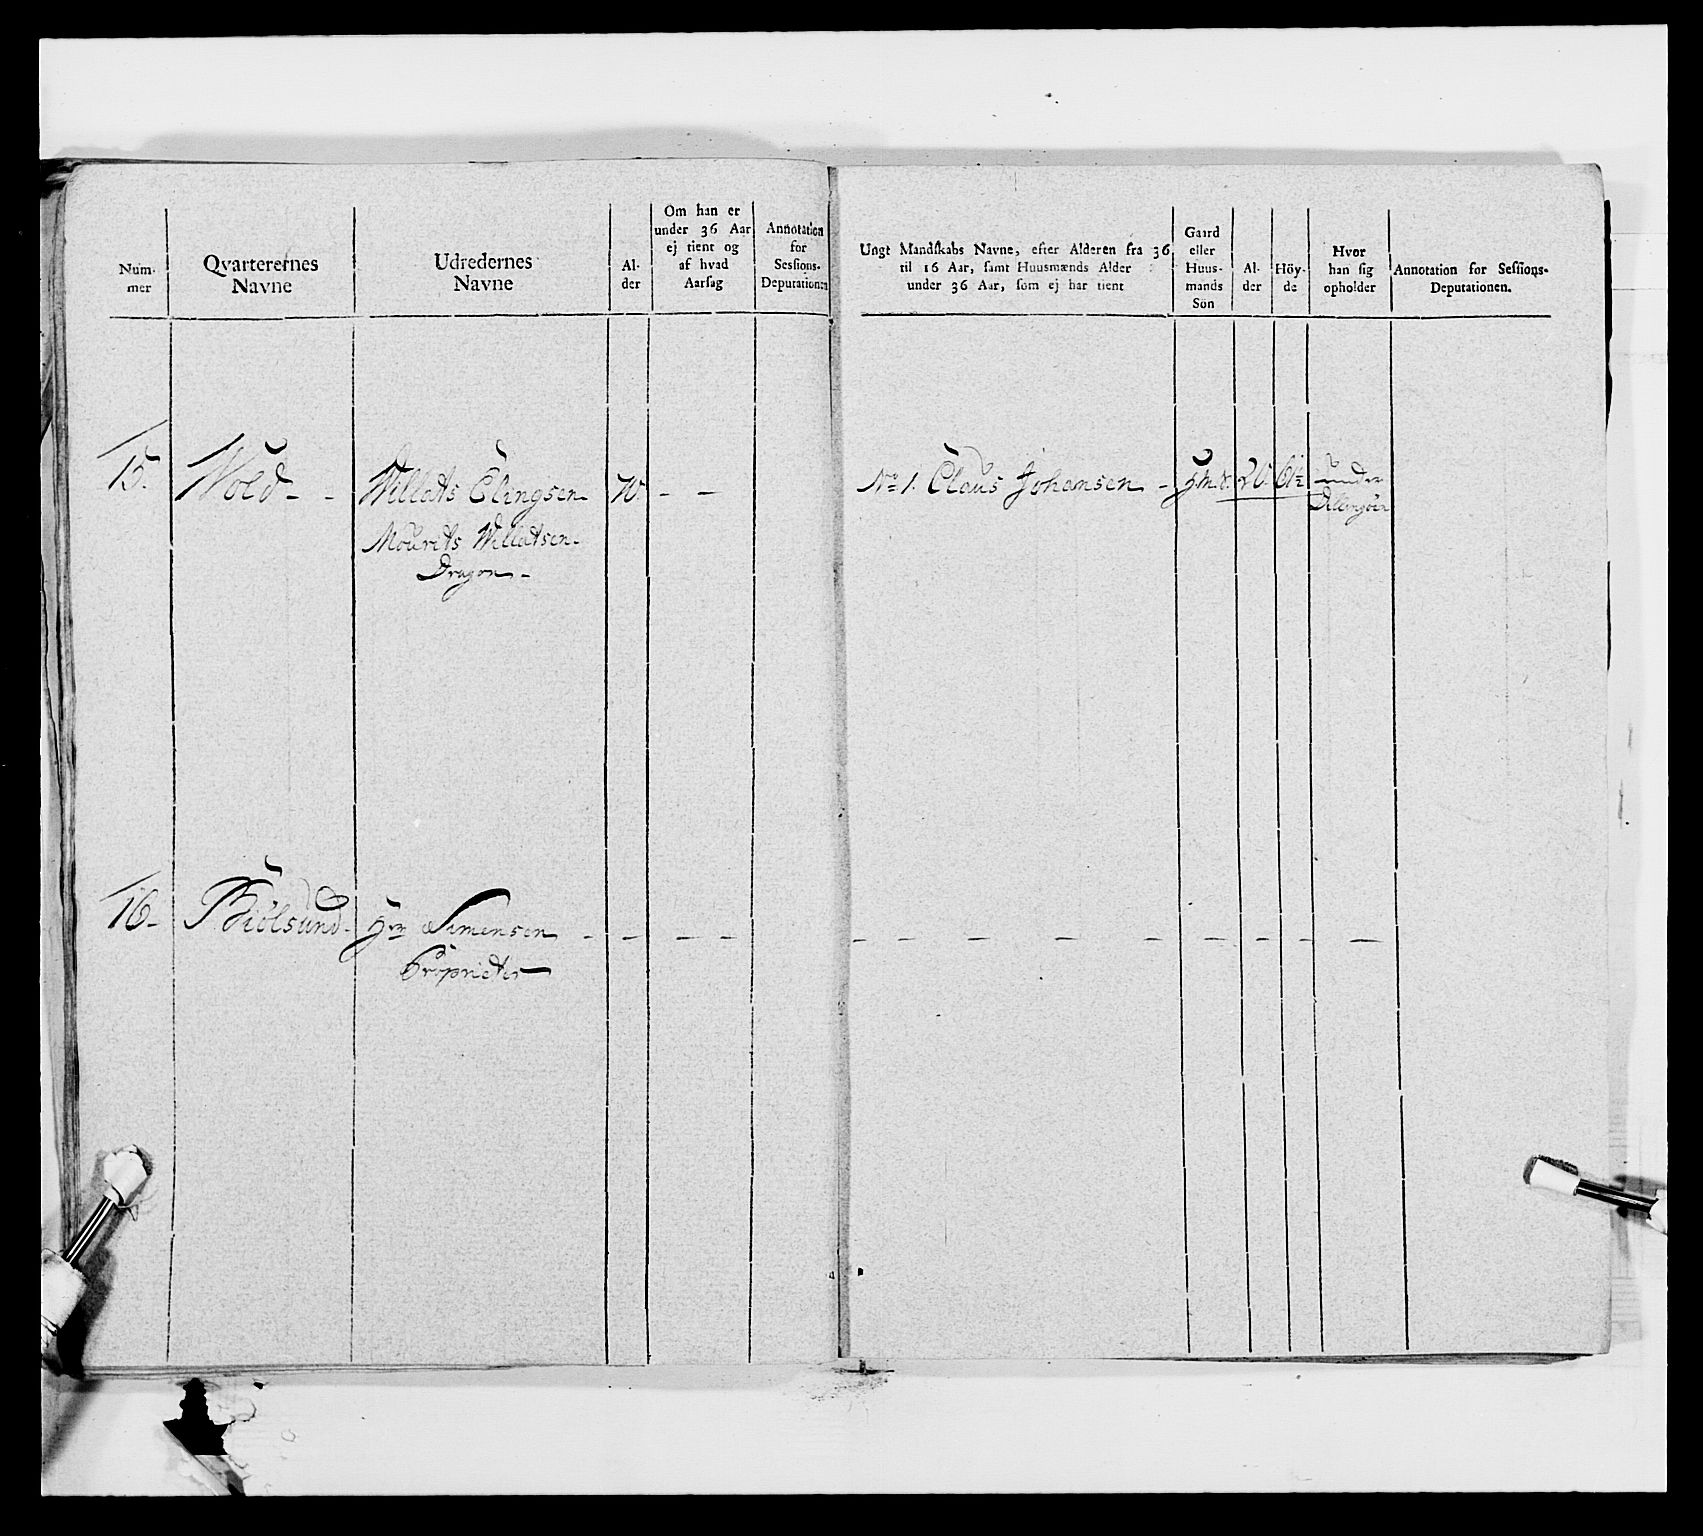 Num-
mer
Qvarterernes
Navne
Udredernes
Navne
Al-
der
Om han er
under 36 Aar
ej tient og
af hvad
Aarsag
Annotation
for
Sessions-
Deputationen
Ungt Mandskabs Navne, efter Alderen fra 36
til 16 Aar, samt Huusmænds Alder
under 36 Aar, som ej har tient
Gaard
eller
Huus-
mands
Sön
Al-
der
Höy-
de
Hvor
han sig
opholder
Annotation for Sessions-
Deputationen.
15. Wold - - Willats Elingsen 70 - - No 1. Claus Johansen - H.M.S. 20. 61½ under
Mourits Willatsen - Dillingöen
Dragon -
16 - Biölsund - Hr Simensen - - - - - - - - - - - -
Proprietær